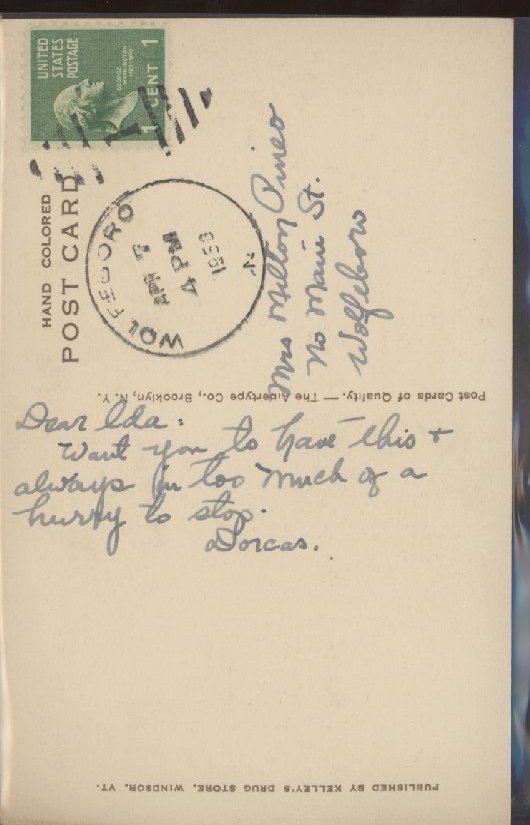 UNITED
STATES
POSTAGE
GEORGE
WASHINGTON
1 CENT 1
HAND COLORED
POST CARD
WOLFEBORO
APR 7
4 PM
N
Mrs Milton Pineo
No Main St.
Wolfeboro
Post Cards of Quality. — The Albertype Co., Brooklyn, N. Y.
Dear Ida:
Want you to have this +
always in too much of a
hurry to stop.
Dorcas.
PUBLISHED BY KELLEY'S DRUG STORE, WINDSOR, VT.